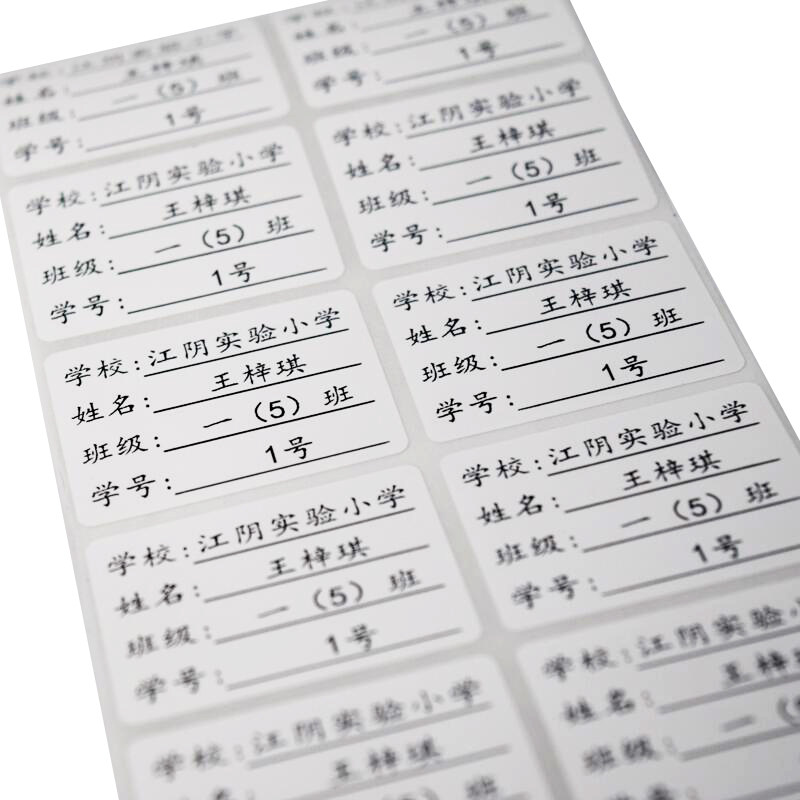 学校:江阴实验小学
姓名:王梓琪
班级:一（5）班
学号:1号
班级:一（5）班
学号:1号
学校:江阴实验小学
姓名:王梓琪
班级:一（5）班
学号:1号
学校:江阴实验小学
姓名:王梓琪
班级:一（5）班
学号:1号
学校:江阴实验小学
姓名:王梓琪
班级:一（5）班
学号:1号
学校:江阴实验小学
姓名:王梓琪
班级:一（5）班
学号:1号
学校:江阴实验小学
姓名:王梓琪
班级:一（5）班
学号:1号
学校:江阴实验小学
姓名:王梓琪
班级:一（5）班
学号:1号
学校:江阴实验小学
王梓琪
学校:江阴实验小
姓名:王梓
班级:一
学号: